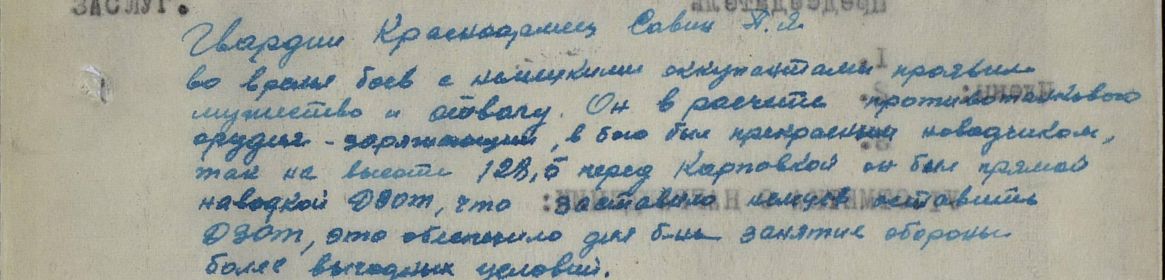 ЗАСЛУГ.
Гвардии Красноармеец Савин П.Я.
во время боев с немецкими оккупантами проявил
мужество и отвагу. Он в расчете противотанкового
орудия - заряжающий, в бою был прекрасным наводчиком,
так на высоте 128,5 перед Карповкой он бил прямой
наводкой ДЗОТ, что заставило немцев оставить
ДЗОТ, это обеспечило для б-на занятие обороны
более выгодных условий.